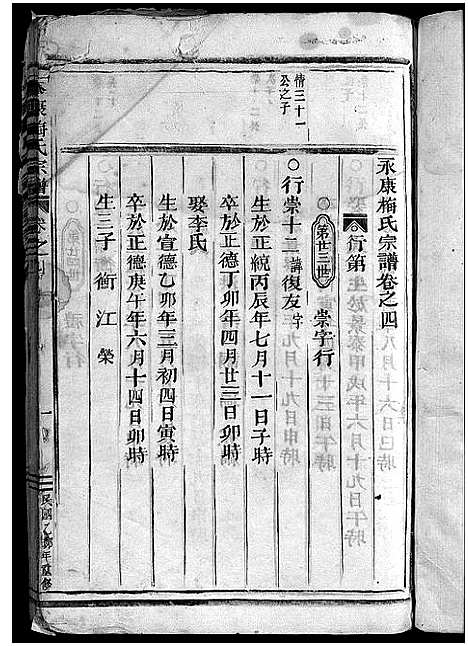 永康梅氏宗譜卷之四
行第
第廿三世 崇字行
情三十一
公之子
○行崇十二諱復友字
生於正統丙辰年七月十一日子時
卒於正德丁卯年四月廿三日卯時
娶李氏
生於宣德乙卯年三月初四日寅時
卒於正德庚午年六月十四日卯時
生三子 衡 江 榮
永康梅氏宗譜 卷之四
一
民國乙卯年重修